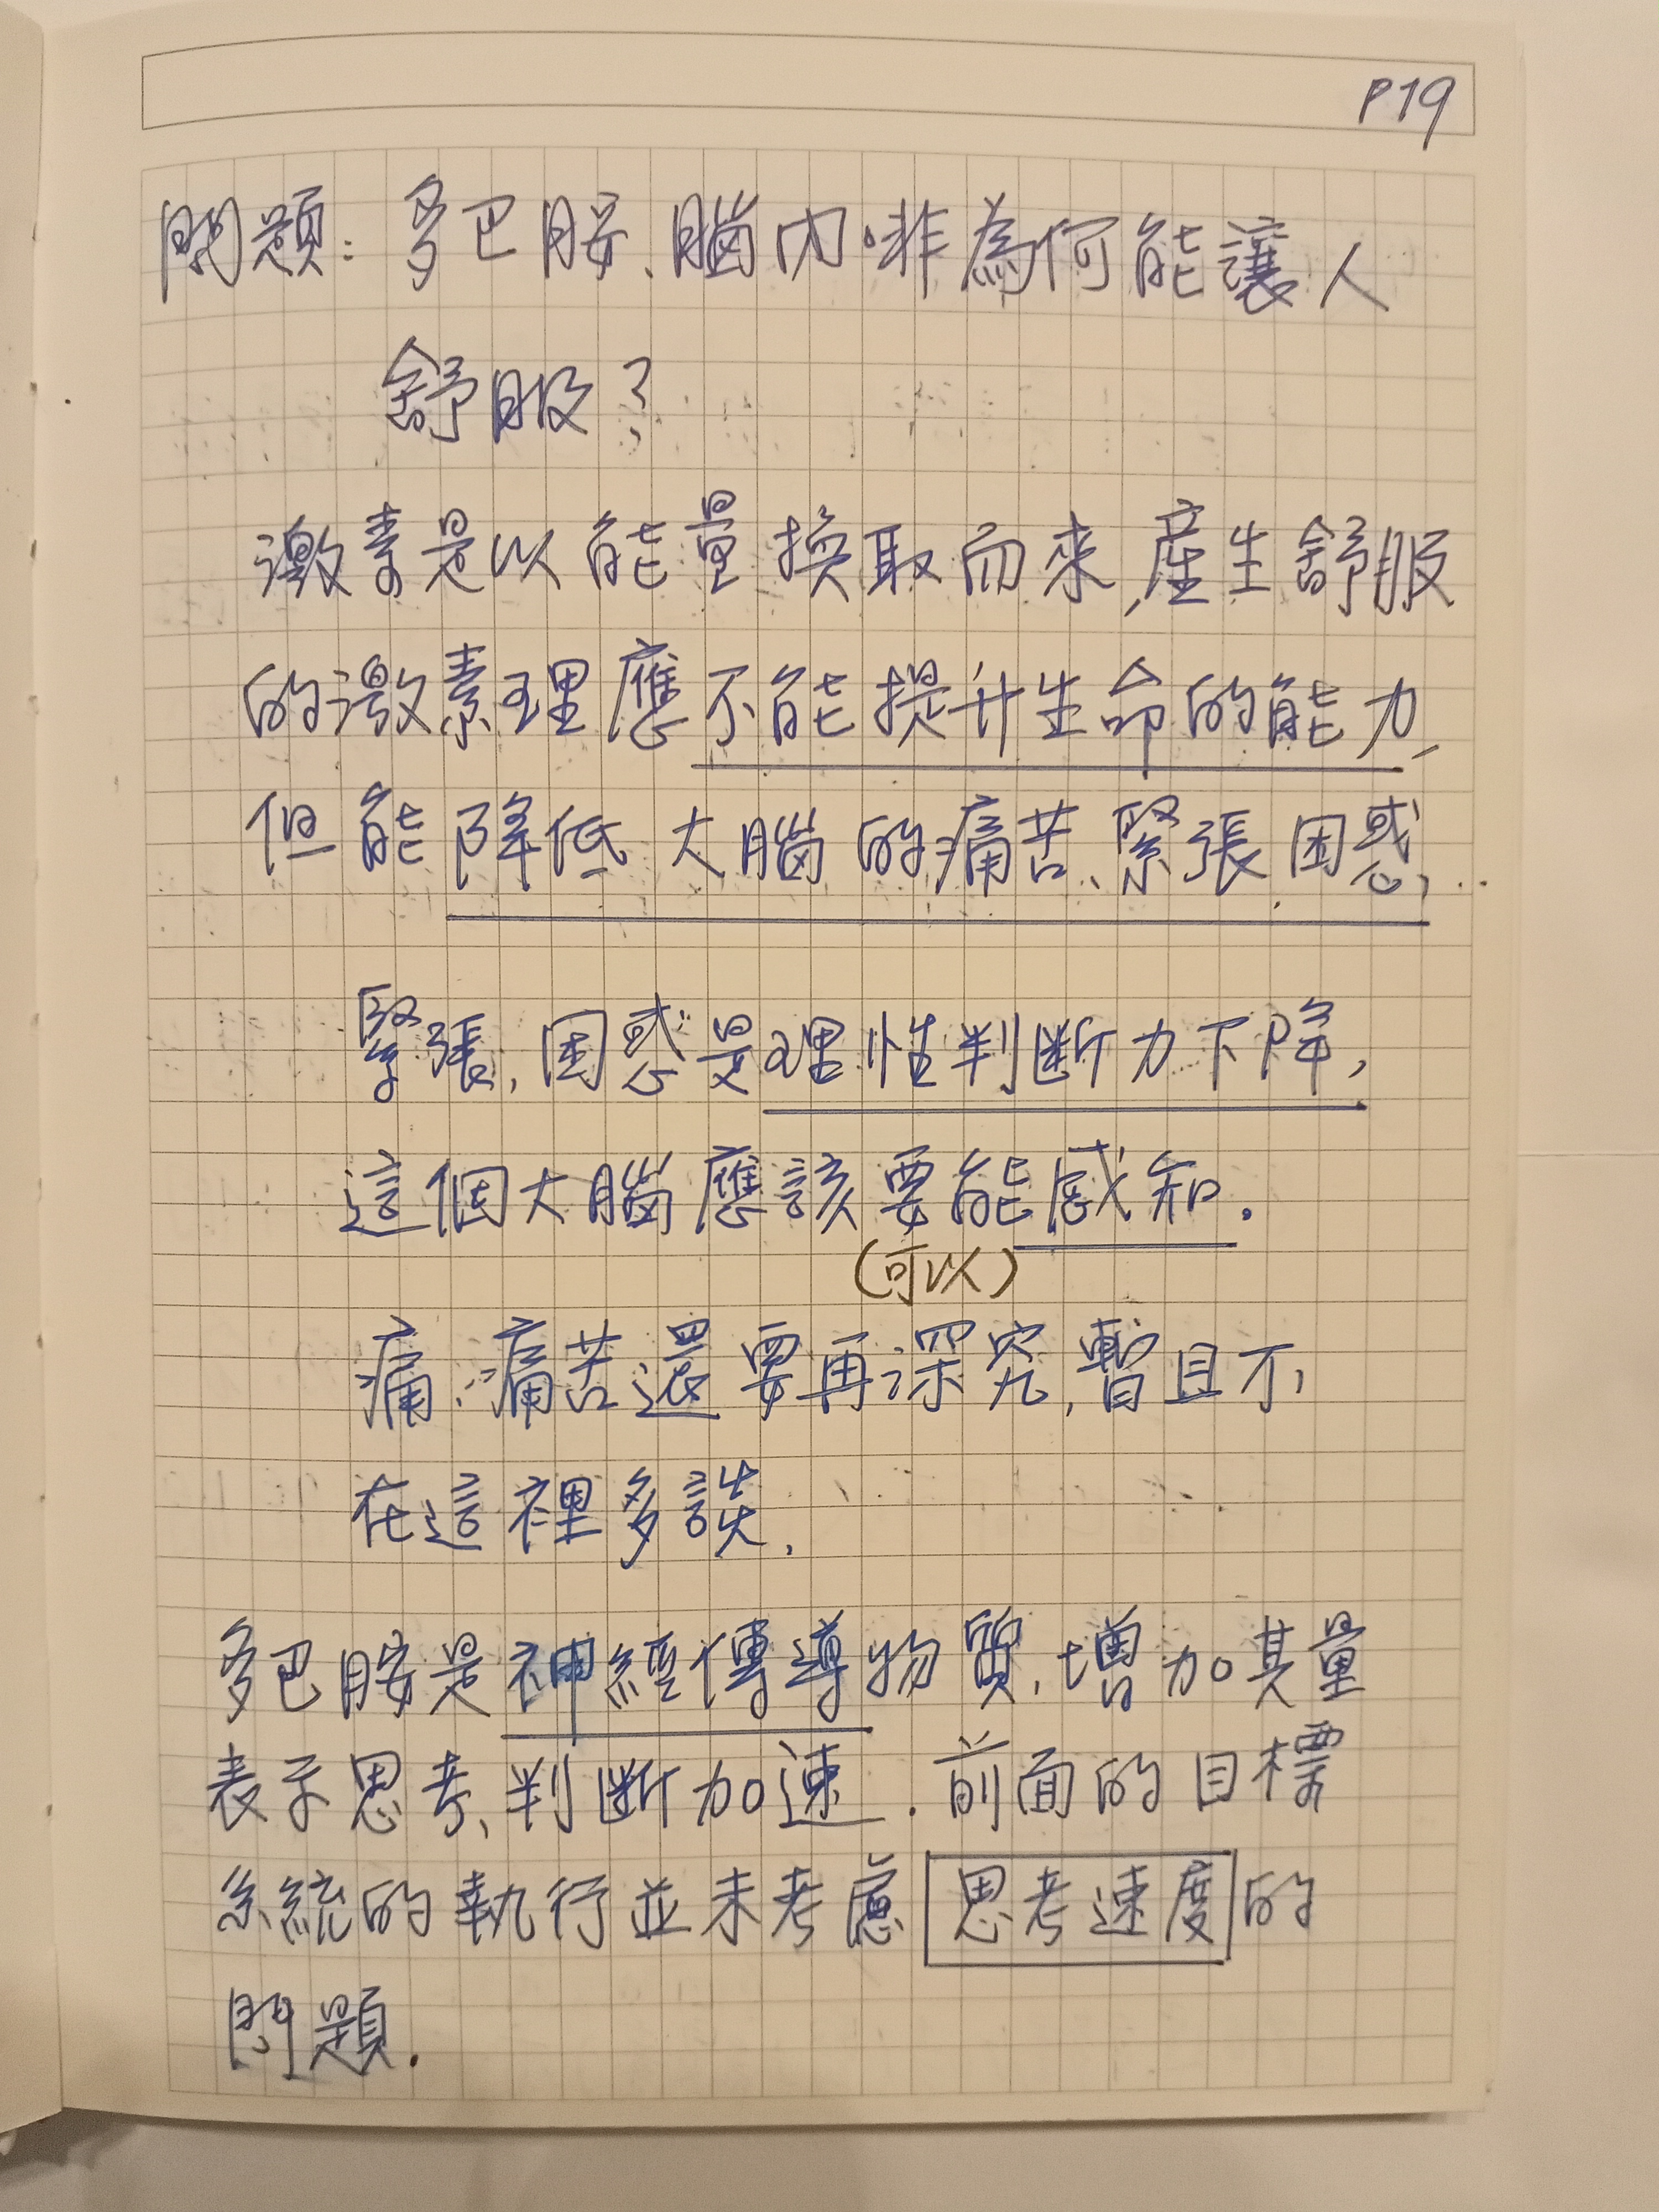 P19
問題：多巴胺、腦內啡為何能讓人
舒服？
激素是以能量換取而來，產生舒服
的激素理應不能提升生命的能力，
但能降低大腦的痛苦、緊張、困惑，
緊張，困惑是理性判斷力下降，
這個大腦應該要能感知．
(可以)
痛、痛苦還要再深究，暫且不
在這裡多談．
多巴胺是神經傳導物質，增加其量
表示思考、判斷加速．前面的目標
系統的執行並未考慮思考速度的
問題．